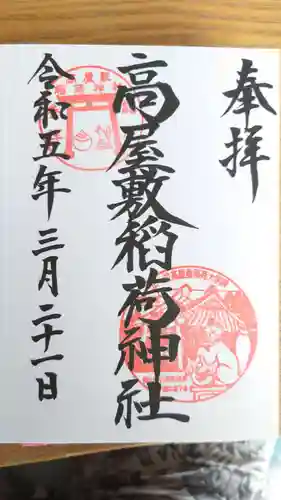 奉拝
高屋敷稲荷神社
令和五年三月二十一日